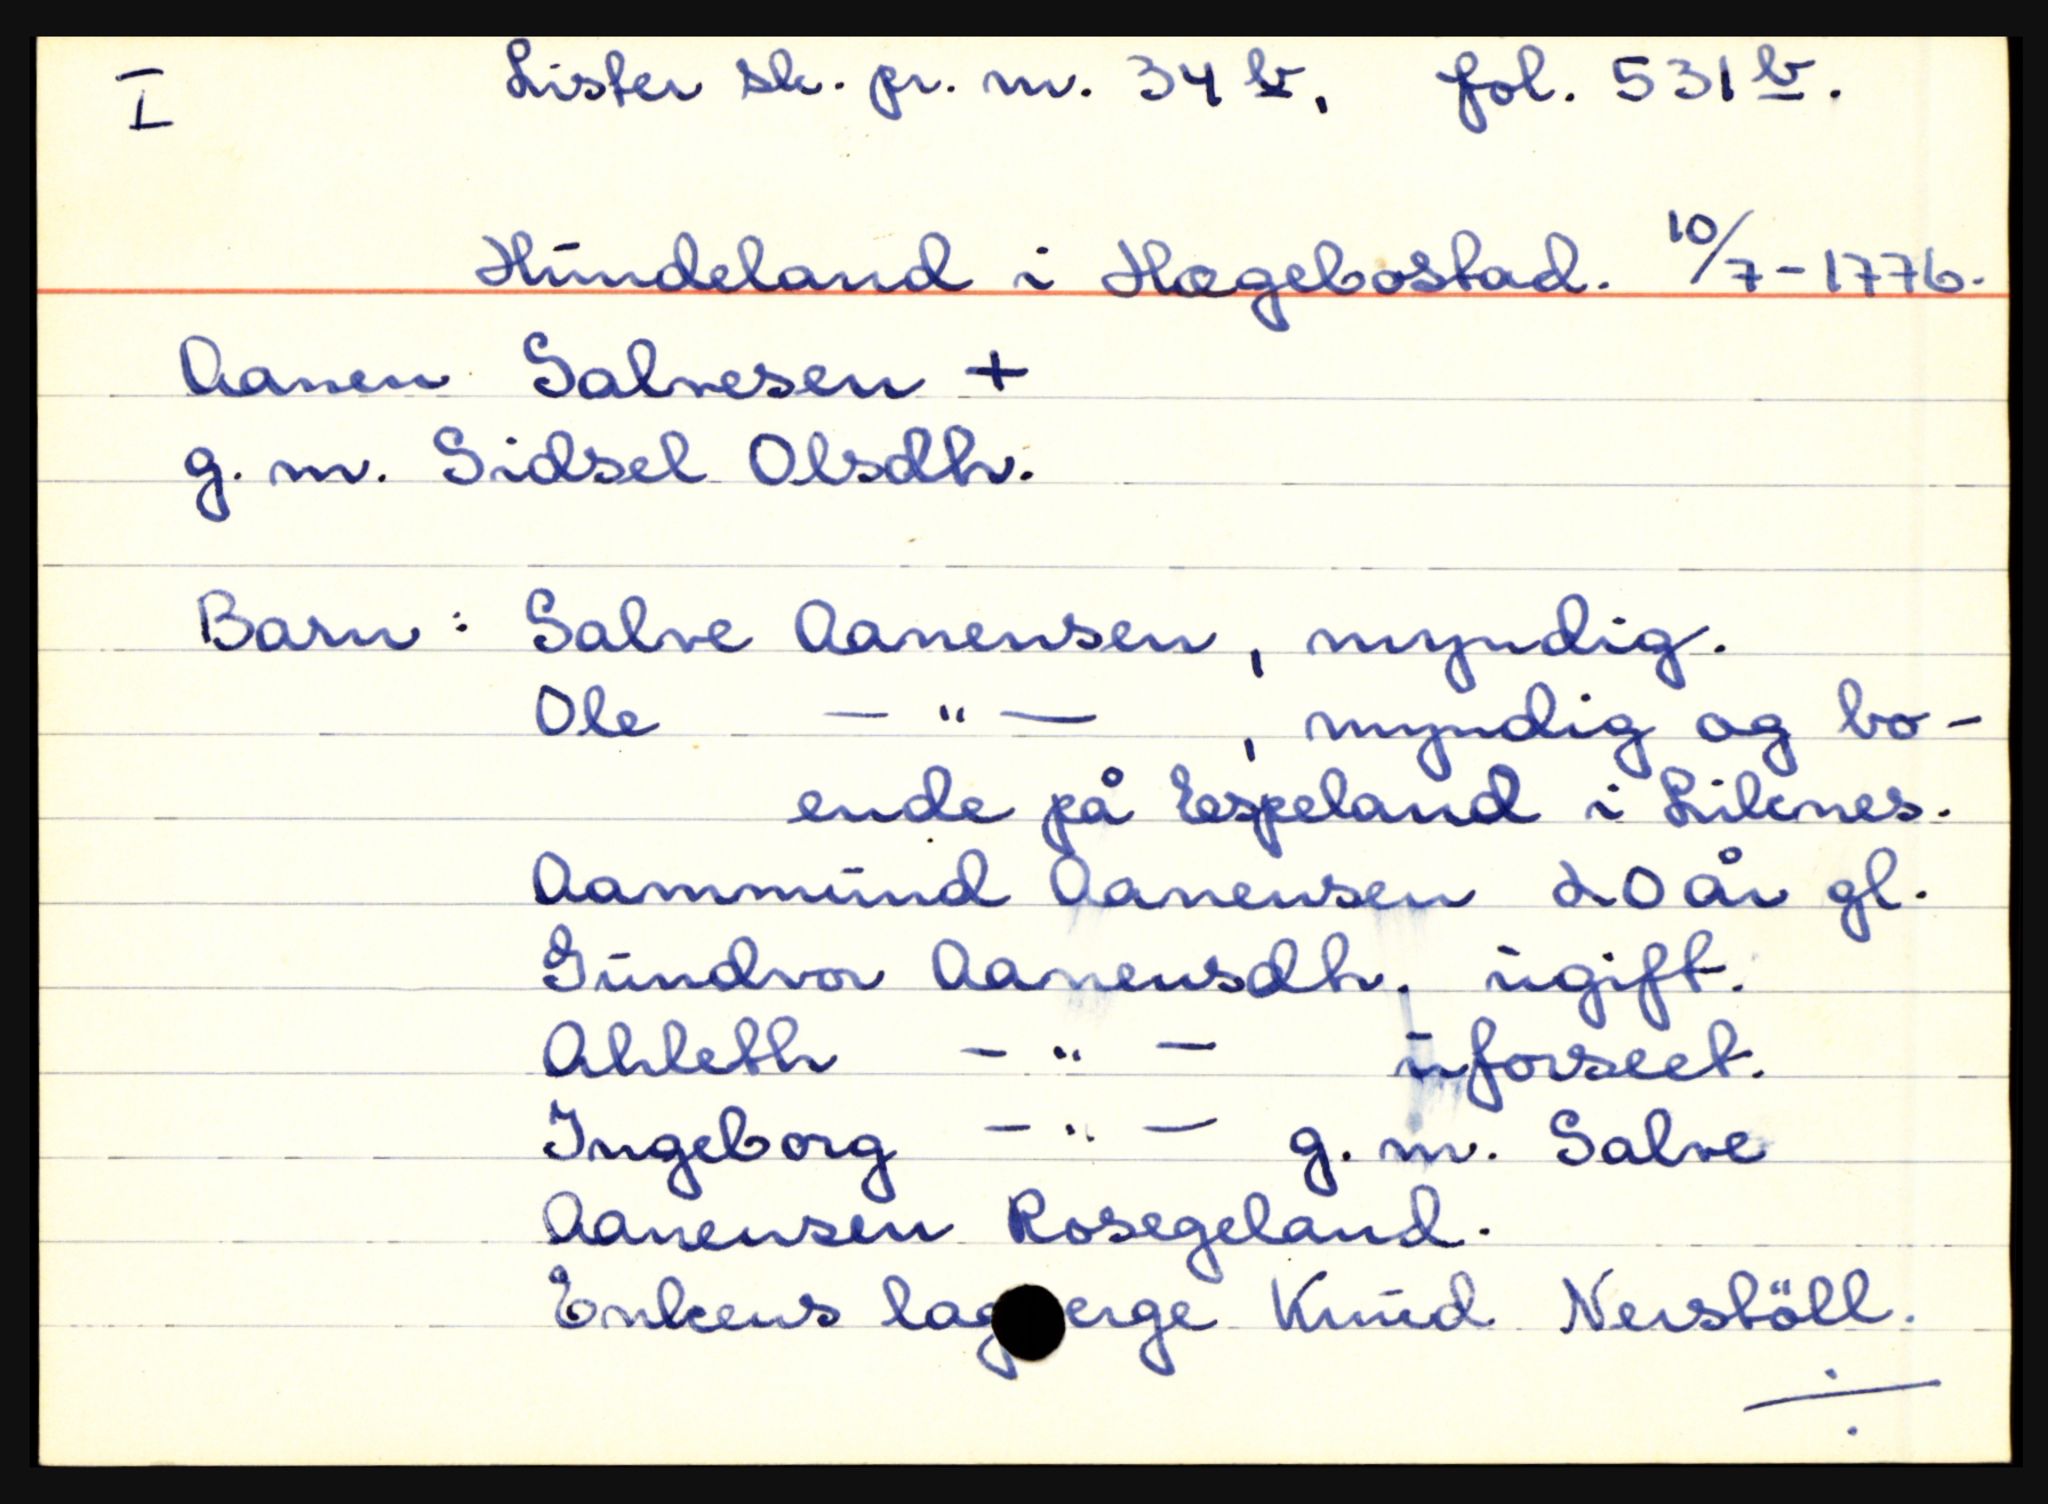 I Lister sk. pr. nr. 34 b, fol. 531 b.
Hundeland i Hægebostad. 10/7-1776.
Aanen Salvesen +
g. m. Sidsel Olsdtr.
Barn: Salve Aanensen, myndig.
Ole — " — , myndig og bo-
ende på Espeland i Liknes.
Aammund Aanensen 20 år gl.
Gundvor Aanensdtr. ugift.
Ahleth — " — uforseet.
Ingeborg — " — g. m. Salve
Aanensen Rosegeland.
Enkens lag erge Knud Nerstöll.